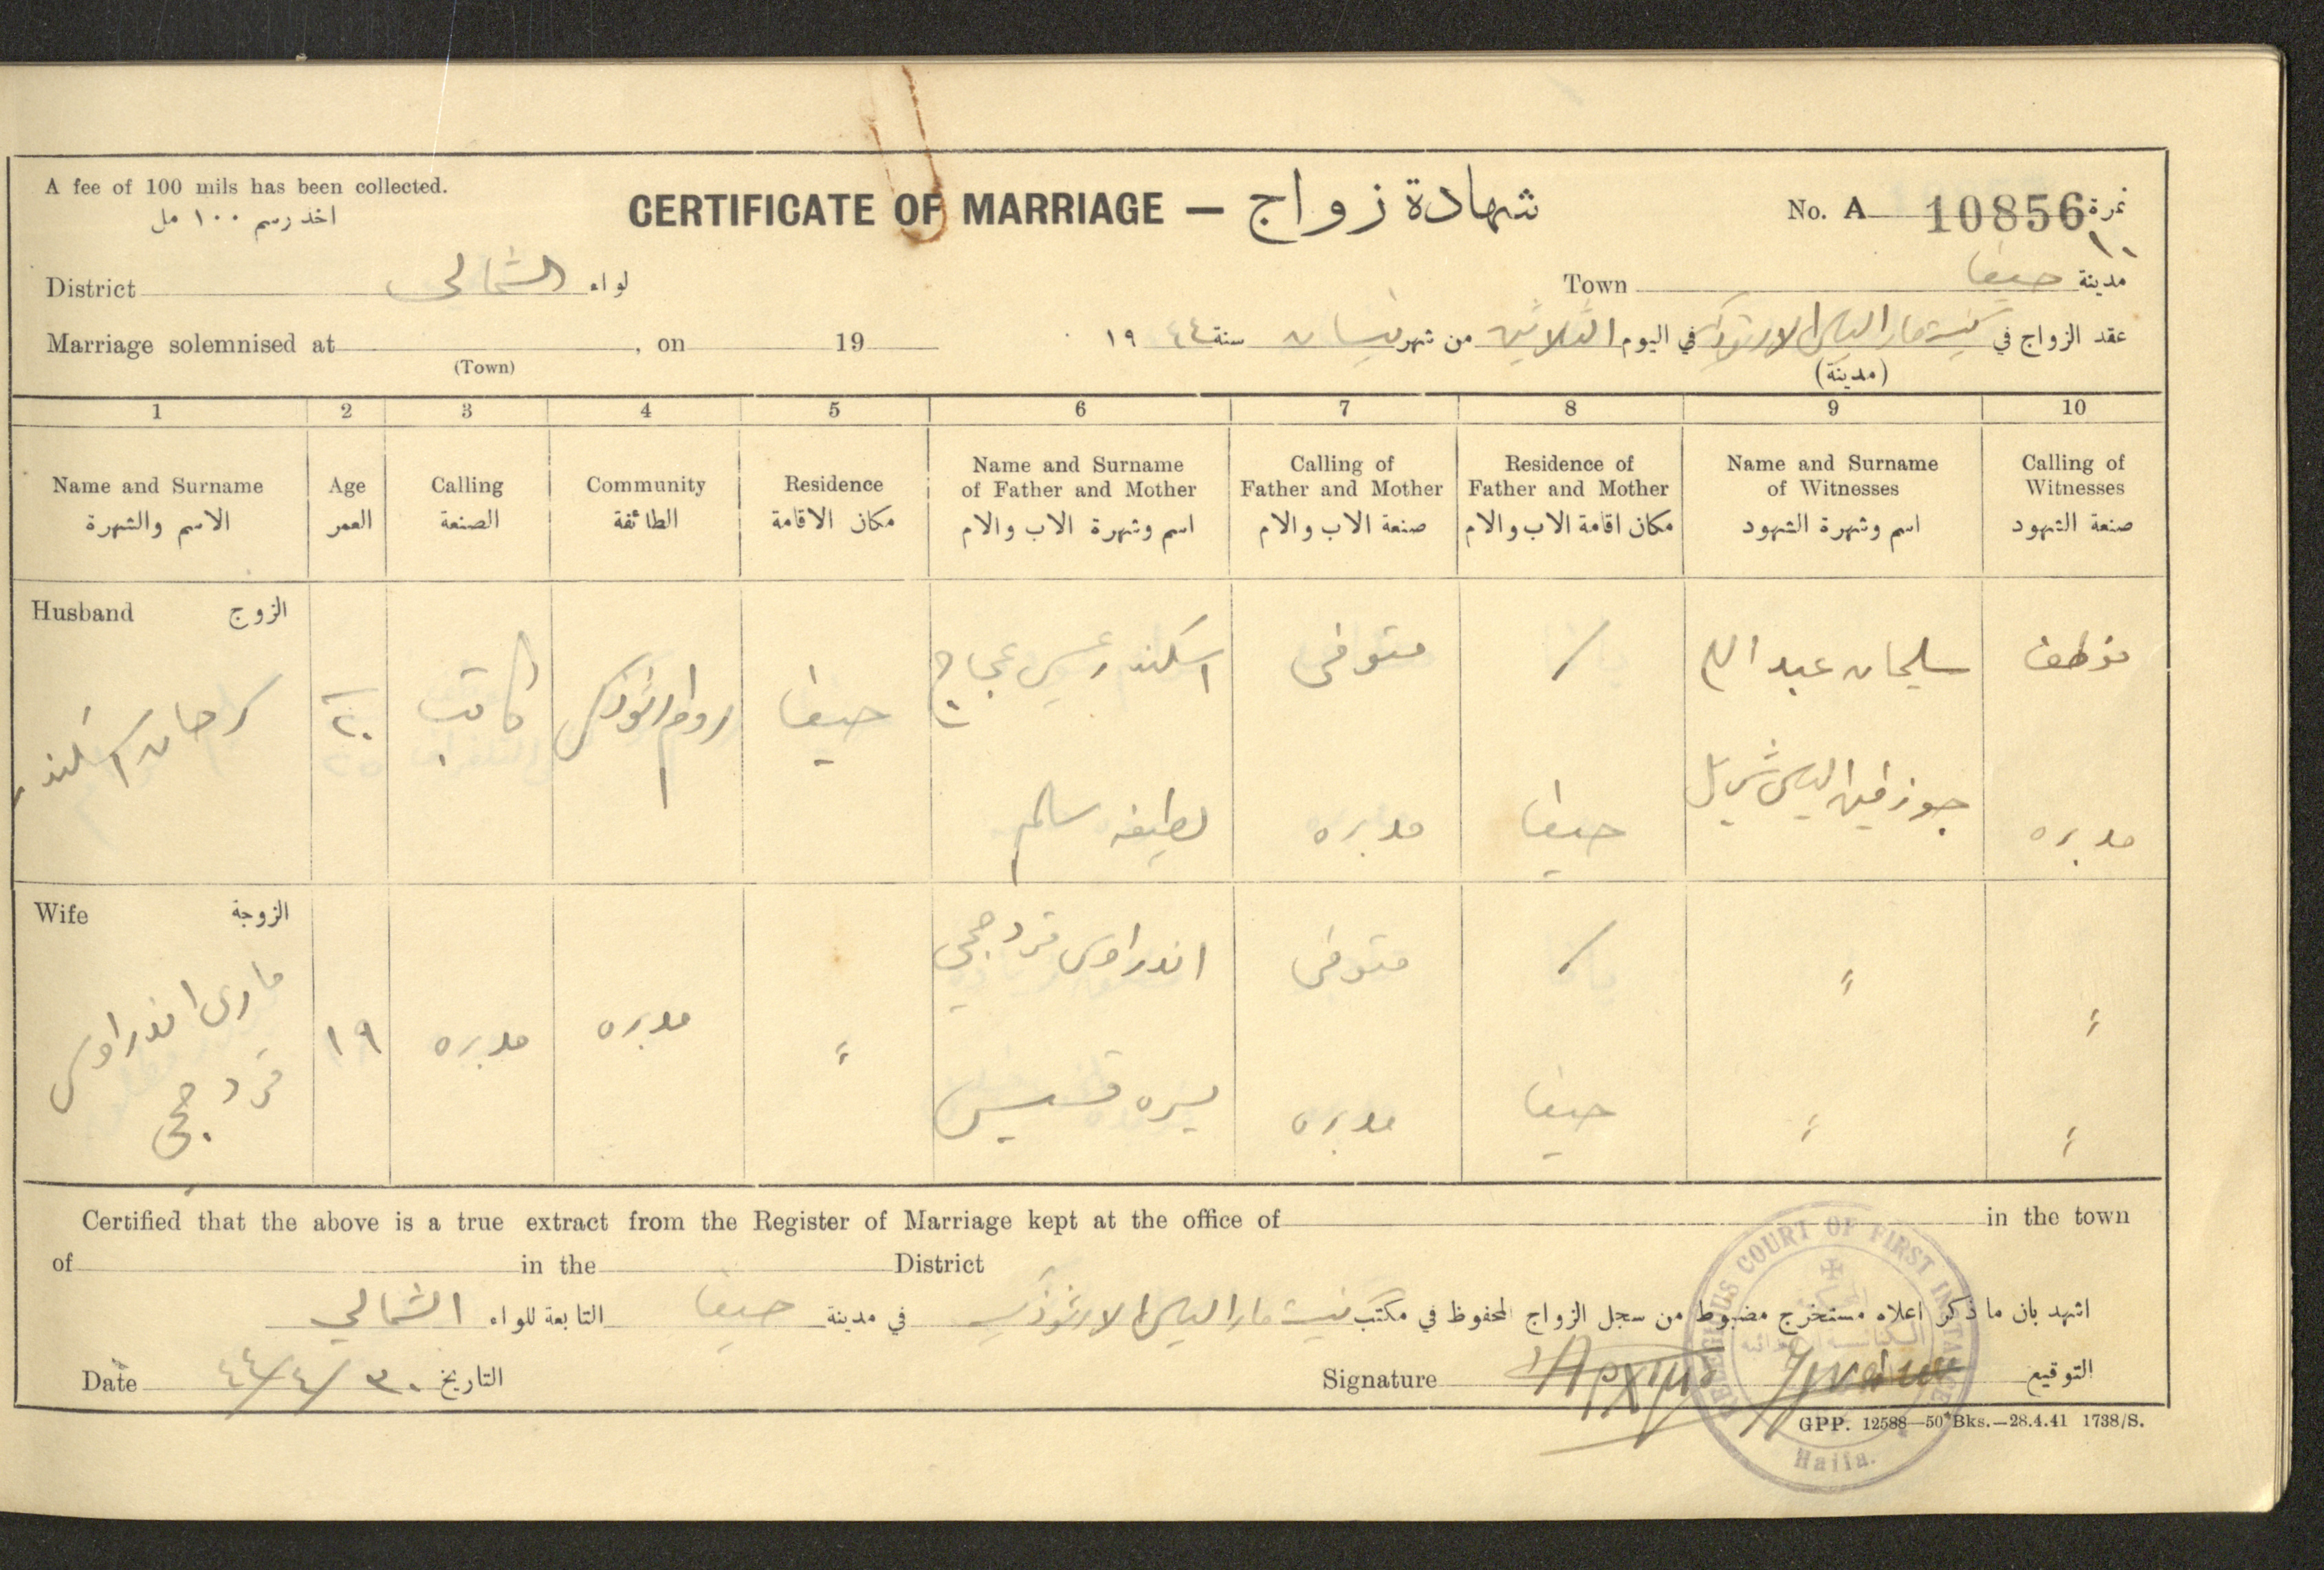 A fee of 100 mils has been collected.
اخذ رسم ١٠٠ مل
CERTIFICATE OF MARRIAGE — شهادة زواج
No. A 10856 نمرة
١٠
District الشمالي لواء
Town حيفا مدينة
Marriage solemnised at , on 19
(Town)
عقد الزواج في كنيسة مار الياس الارثوذكس في اليوم الثلاثين من شهر نيسان سنة ١٩٤٤
(مدينة)
1 2 3 4 5 6 7 8 9 10
Name and Surname الاسم والشهرة
Age العمر
Calling الصنعة
Community الطائفة
Residence مكان الاقامة
Name and Surname of Father and Mother اسم وشهرة الاب والام
Calling of Father and Mother صنعة الاب والام
Residence of Father and Mother مكان اقامة الاب والام
Name and Surname of Witnesses اسم وشهرة الشهود
Calling of Witnesses صنعة الشهود
Husband الزوج
اسكندر
كاتب
روم ارثوذكس
حيفا
اسكندر عيسى
متوفى
/
سليمان عبد
موظف
لطيفه سالم
مدبره
حيفا
جوزفين الياس
مدبره
Wife الزوجة
ماري اندراوس
قردحجي
١٩
مدبره
مدبره
"
اندراوس قردحجي
متوفى
/
"
"
قسيس
مدبره
حيفا
"
"
Certified that the above is a true extract from the Register of Marriage kept at the office of in the town
of in the District
اشهد بان ما ذكر اعلاه مستخرج مضبوط من سجل الزواج المحفوظ في مكتب كنيسة مار الياس الارثوذكسية في مدينة حيفا التابعة للواء الشمالي
Date ٣٠/٤/٤٤ التاريخ
Signature التوقيع
RELIGIOUS COURT OF FIRST INSTANCE
Haifa.
GPP. 12588—50 Bks.—28.4.41 1738/S.